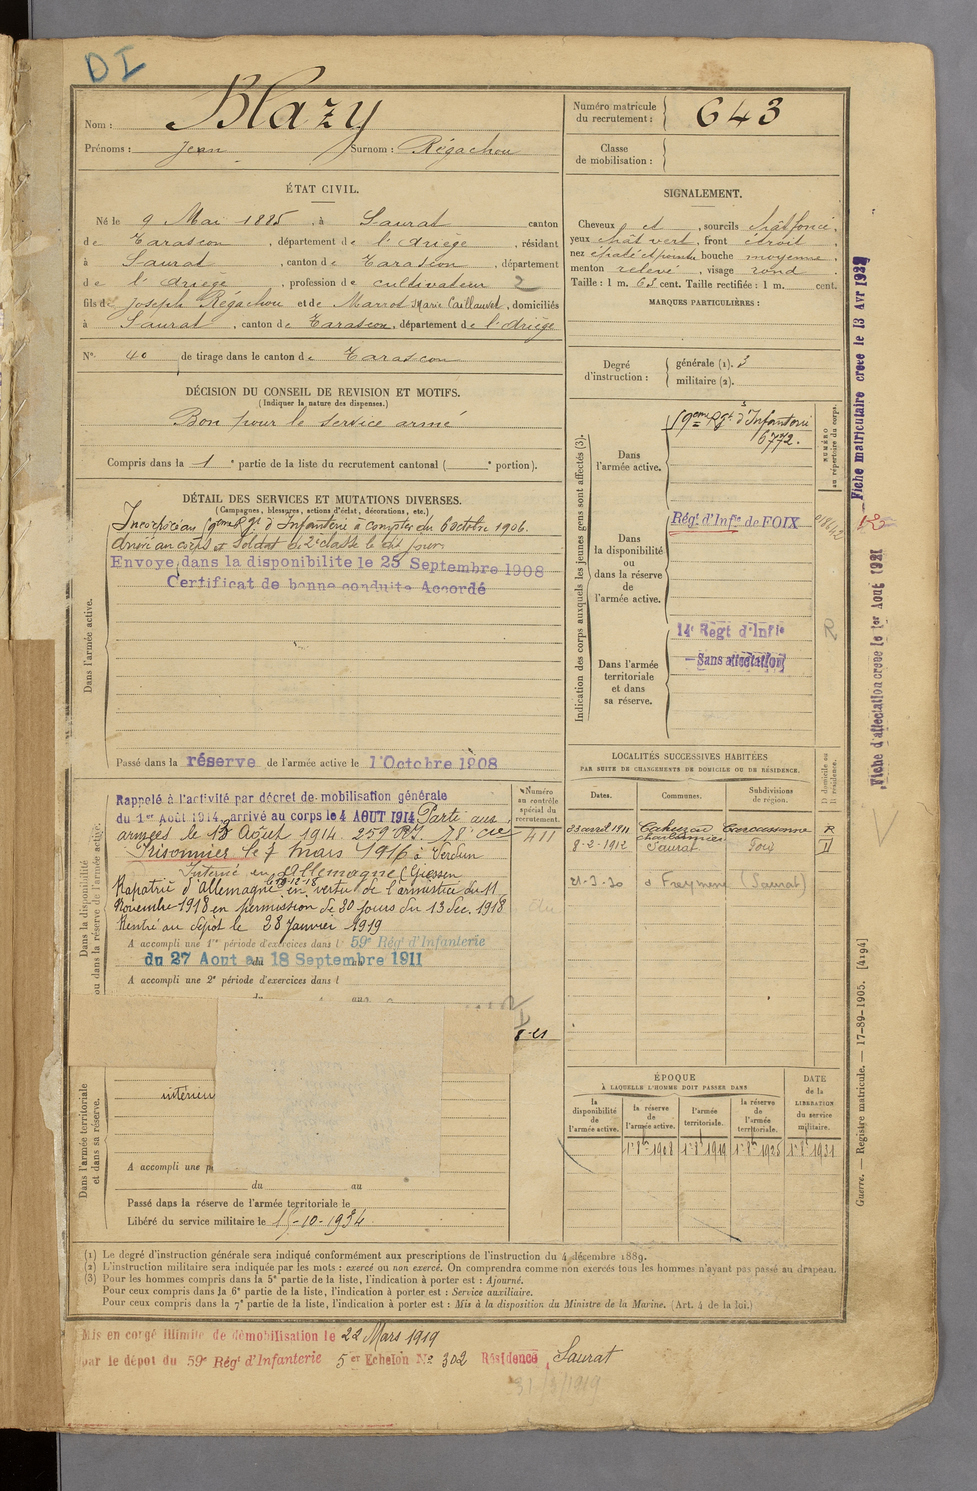 DI
Nom : Blazy
Prénoms : Jean Surnom : Régachou
Numéro matricule du recrutement : 643
Classe de mobilisation :
ÉTAT CIVIL.
Né le 9 Mai 1885, à Saurat canton
de Tarascon, département de l'Ariège, résidant
à Saurat, canton de Tarascon, département
de l'Ariège, profession de cultivateur 2
fils de Joseph Régachou et de Marrot Marie Caillauvel, domiciliés
à Saurat, canton de Tarascon, département de l'Ariège
N° 40 de tirage dans le canton de Tarascon
SIGNALEMENT.
Cheveux et, sourcils chât foncé,
yeux chât vert, front étroit,
nez bouche moyenne,
menton relevé, visage rond
Taille : 1 m. 63 cent. Taille rectifiée : 1 m. cent.
MARQUES PARTICULIÈRES :
Degré d'instruction : générale (1). 3
militaire (2).
DÉCISION DU CONSEIL DE REVISION ET MOTIFS.
(Indiquer la nature des dispenses.)
Bon pour le service armé
Compris dans la 1e partie de la liste du recrutement cantonal ( e portion).
DÉTAIL DES SERVICES ET MUTATIONS DIVERSES.
(Campagnes, blessures, actions d'éclat, décorations, etc.)
Dans l'armée active.
Incorporé au 59eme Rgt d'Infanterie à compter du 6 octobre 1906.
Arrivé au corps et Soldat de 2e classe le dit jour.
Envoyé dans la disponibilité le 25 Septembre 1908
Certificat de bonne conduite Accordé
Passé dans la réserve de l'armée active le 1 Octobre 1908
Indication des corps auxquels les jeunes gens sont affectés (3).
NUMÉRO au répertoire du corps.
Dans l'armée active.
59eme Rgt d'Infanterie
6772.
Dans la disponibilité ou dans la réserve de l'armée active.
Régt d'Infie de FOIX
Dans l'armée territoriale et dans sa réserve.
14e Régt d'Infie
Sans affectation
R
Fiche matriculaire créée le 13 Avr 1932
Fiche d'affectation créée le 1er Aout 1921
Dans la disponibilité ou dans la réserve de l'armée active.
Rappelé à l'activité par décret de mobilisation générale
du 1er Août 1914, arrivé au corps le 4 AOUT 1914 Parti aux
armées le 13 Août 1914. 259e RI
Prisonnier le 7 mars 1916 à Verdun
Interné en Allemagne (Giessen
Rapatrié d'Allemagne en vertu de l'armistice du 11
Novembre 1918 en permission de 30 jours du 13 Dec. 1918
Rentré au dépôt le 28 Janvier 1919
A accompli une 1re période d'exercices dans l 59e Régt d'Infanterie
du 27 Aout au 18 Septembre 1911
A accompli une 2e période d'exercices dans l
Numéro au contrôle spécial du recrutement.
411
LOCALITÉS SUCCESSIVES HABITÉES
PAR SUITE DE CHANGEMENTS DE DOMICILE OU DE RÉSIDENCE.
Dates. Communes. Subdivisions de région. D domicile ou R résidence.
23 avril 1911 Carcassonne R
8-2-1912 Saurat Foix D
21-3-30 (Saurat)
ÉPOQUE
À LAQUELLE L'HOMME DOIT PASSER DANS
la disponibilité de l'armée active. la réserve de l'armée active. l'armée territoriale. la réserve de l'armée territoriale. DATE de la LIBÉRATION du service militaire.
1er 8bre 1908 1er 8bre 1919 1er 8bre 1925 1er 8bre 1931
Dans l'armée territoriale et dans sa réserve.
intérieur
A accompli une p
du au
Passé dans la réserve de l'armée territoriale le
Libéré du service militaire le 15-10-1934
(1) Le degré d'instruction générale sera indiqué conformément aux prescriptions de l'instruction du 4 décembre 1889.
(2) L'instruction militaire sera indiquée par les mots : exercé ou non exercé. On comprendra comme non exercés tous les hommes n'ayant pas passé au drapeau.
(3) Pour les hommes compris dans la 5e partie de la liste, l'indication à porter est : Ajourné.
Pour ceux compris dans la 6e partie de la liste, l'indication à porter est : Service auxiliaire.
Pour ceux compris dans la 7e partie de la liste, l'indication à porter est : Mis à la disposition du Ministre de la Marine. (Art. 4 de la loi.)
Guerre. — Registre matricule. — 17-89-1905. [4194]
Mis en congé illimité de démobilisation le 22 Mars 1919
par le dépôt du 59e Régt d'Infanterie 5er Echelon No 302 Résidence Saurat
31/3/1919